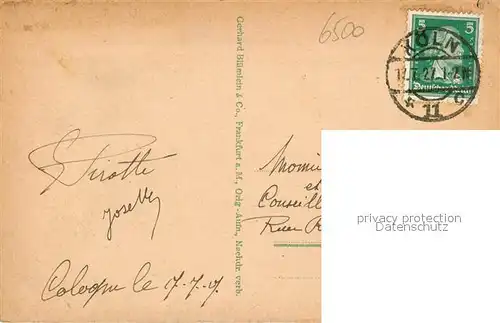 6500
5 5
Deutsches Reich
KÖLN
11
Gerhard Blümlein & Co., Frankfurt a. M., Orig.-Aufn., Nachdr. verb.
Pirotte
Cologne le 17.7.27
et
Conseill
Rue
privacy protection
datenschutz